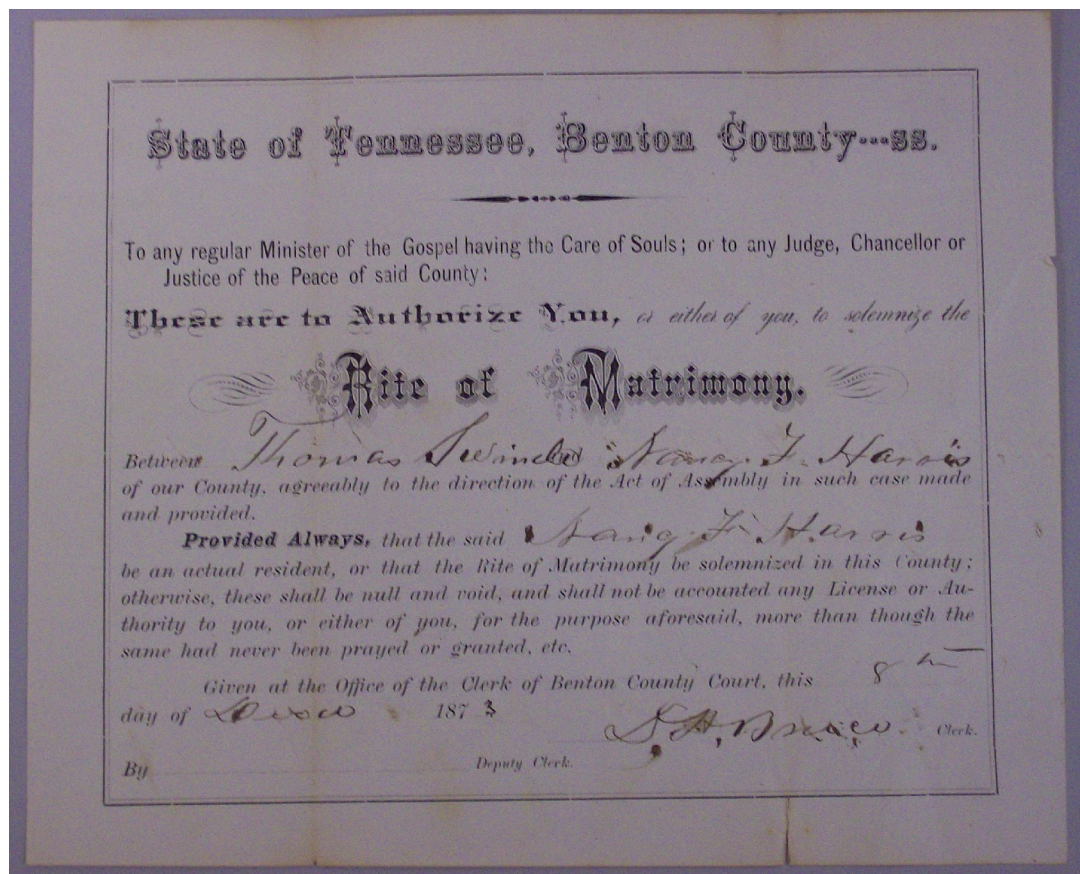 State of Tennessee, Benton County---ss.
To any regular Minister of the Gospel having the Care of Souls; or to any Judge, Chancellor or
Justice of the Peace of said County:
These are to Authorize You, or either of you, to solemnize the
Rite of Matrimony.
Between Thomas Nancy F. Harris
of our County, agreeably to the direction of the Act of Assembly in such case made
and provided.
Provided Always, that the said Nancy F. Harris
be an actual resident, or that the Rite of Matrimony be solemnized in this County;
otherwise, these shall be null and void, and shall not be accounted any License or Au-
thority to you, or either of you, for the purpose aforesaid, more than though the
same had never been prayed or granted, etc.
Given at the Office of the Clerk of Benton County Court, this 8th
day of 1873
Clerk.
By Deputy Clerk.